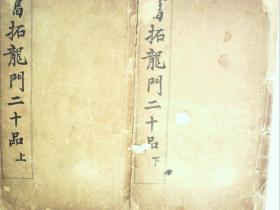 舊拓龍門二十品上
舊拓龍門二十品下